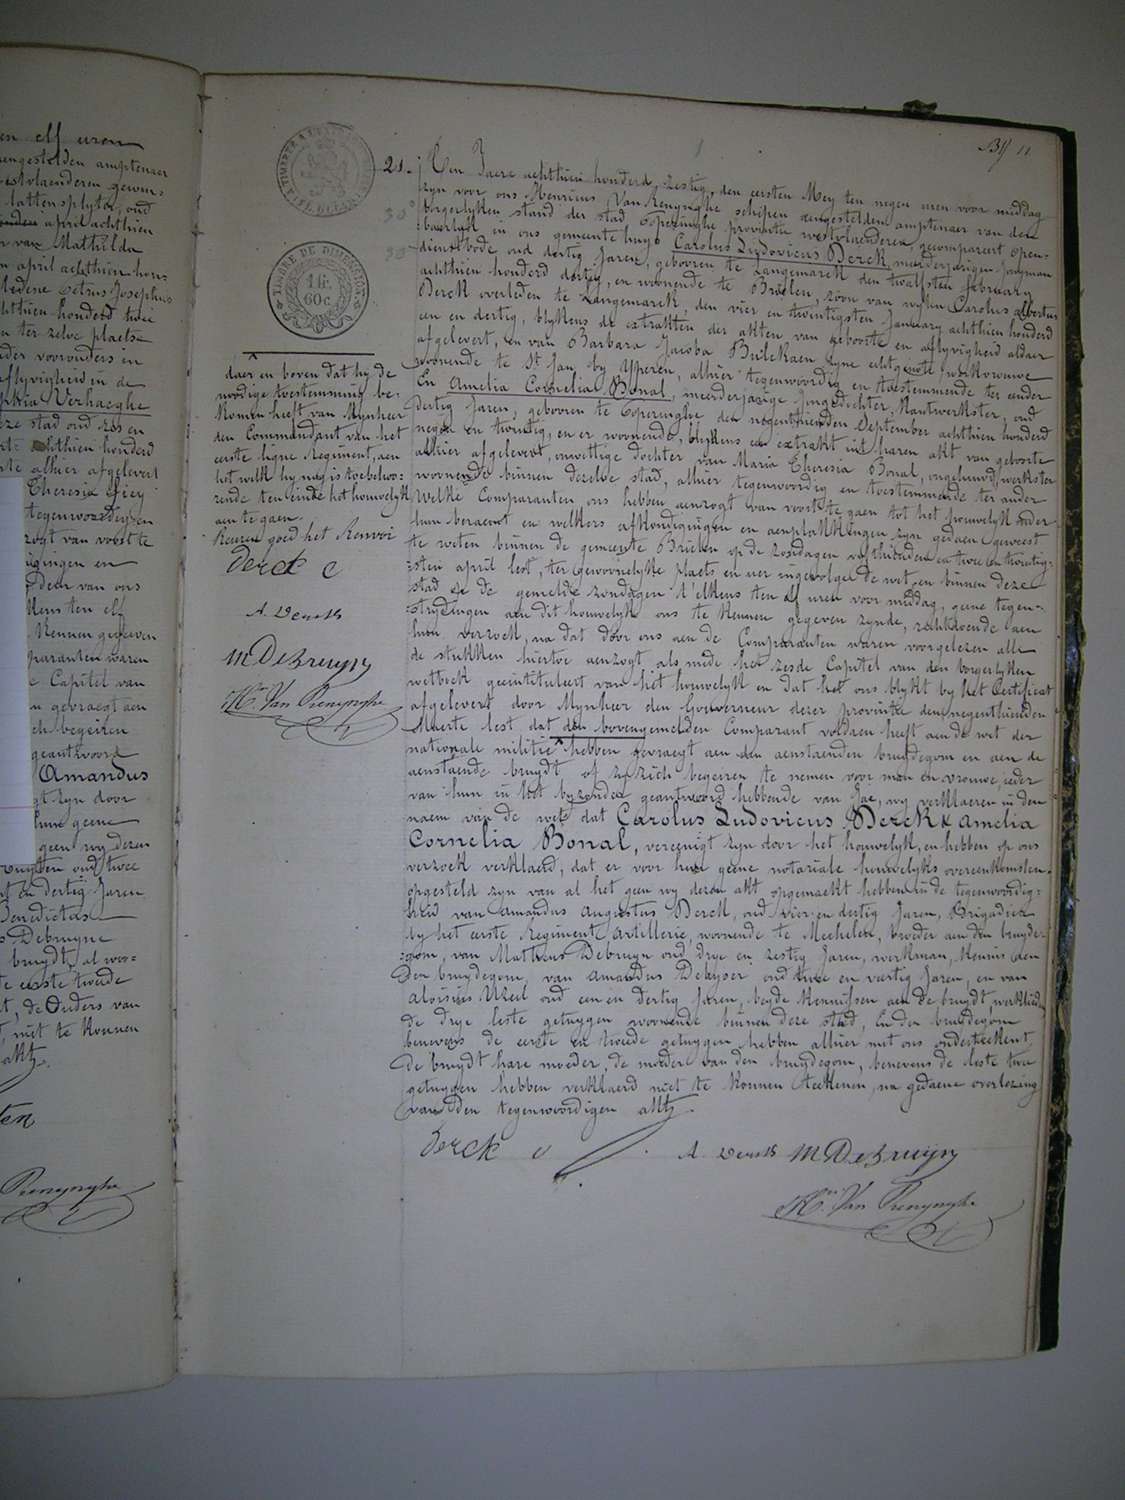 en elf uren
aengestelden amptenaer
westvlaenderen gecom-
Lattensplyte, oud
april achthien
van Mathilda
n april achthien hon-
ledene Petrus Josephus
achthien honderd twee
n ter zelve plaets
der voorouders en
aflyvigheid in de
Verhaeghe
ze stad oud zes en
achthien honderd
alhier afgelevert
Theresia
tegenwoordig en
zogt van voorts te
en
deur van ons
ten elf
Kennen gegeven
paranten waren
Capitel van
n gevraegt aen
ch begeiren
geantwoord
Amandus
gt zyn door
hune geene
geen wy dezen
oud twee
en dertig Jaren
Benedictus
Debruyne
bruydt, al wer-
te eerste tweede
t, de Ouders van
niet te konnen
akt.
Renynghe
TIMBRE DE DIMENSION
1 fr.
60 c.
21.
30
11
daer en boven dat hy de
noodige toestemming be-
komen heeft van Mynheer
den Commandant van het
eerste ligne Regiment, aen
het welk hy nog is toebehoo-
rende ten einde het houwelyk
aen te gaen.
Keuren goed het Renvoi
Derck C
A. Derck
M DeBruyn
Hri Van Renynghe
Een Jaere achthien honderd zestig, den eersten Mey ten negen uren voor middag
zyn voor ons Henricus Van Renynghe schepen aengestelden amptenaer van den
borgerlyken stand der stad Poperinghe provintie westvlaenderen, gecompareert open-
baerlyk in ons gemeente huys Carolus Ludovicus Derck, meerderjarigen jongman
dienstbode oud dertig Jaren, gebooren te Langemarck den twalfsten february
achthien honderd dertig, en woonende te Brielen, zoon van wylen Carolus Albertus
Derck overleden te Langemarck den vier en twintigsten January achthien honderd
een en dertig, blykens de extrakten der akten van geboorte en aflyvigheid aldaer
afgelevert, en van Barbara Jacoba zyne echtgenote Jufvrouwe
woonende te St Jan by Ypperen, alhier tegenwoordig en toestemmende ter ander
En Amelia Cornelia Bonal, meerderjarige Jongedochter, Kantwerkster, oud
dertig Jaren, gebooren te Poperinghe den negenthienden September achthien honderd
negen en twintig, en er woonende, blykens en extrakt uit haren akt van geboorte
alhier afgelevert, onwettige dochter van Maria Theresia Bonal, ongehuwd, werkster
woonende binnen dezelve stad, alhier tegenwoordig en toestemmende ter ander
Welke Comparanten ons hebben aenzogt van voorts te gaen tot het houwelyk onder
hun beraemt en welkers afkondigingen en aenplakkingen zyn gedaen geweest
te weten binnen de gemeente Brielen op de zondagen vyfthienden en twee en twintig-
sten april lest, ter gewoonelyke plaets en uer ingevolge de wet, en binnen deze
stad de gemelde zondagen t'elkens ten elf uren voor middag, geene tegen-
strydingen aen dit houwelyk ons te kennen gegeven zynde, rechtdoende aen
hun verzoek, na dat door ons aen de Comparanten waren voorgelezen alle
de stukken hiertoe aenzogt als mede het zesde Capitel van den borgerlyken
wetboek geeintituleert van het houwelyk en dat het ons blykt by het Certificat
afgelevert door Mynheer den Gouverneur dezer provintie den negenthienden
Maerte lest dat den bovengemelden Comparant voldaen heeft aen de wet der
nationale militie hebben gevraegt aen den aenstaenden bruydegom en aen de
aenstaende bruydt of zy zich begeiren te nemen voor man en vrouwe, ieder
van hun in het byzonder geantwoord hebbende van Jae, wy verklaeren in den
naem van de wet dat Carolus Ludovicus Derck & Amelia
Cornelia Bonal, vereenigt zyn door het houwelyk, en hebben op ons
verzoek verklaerd, dat er voor hun geene notariale huwelyks overeenkomsten
opgesteld zyn van al het geen wy dezen akt opgemaekt hebben in de tegenwoordig-
heid van Amandus Augustus Derck, oud vier en dertig Jaren, Brigadier
by het eerste Regiment artillerie, woonende te Mechelen, broeder aen den bruyde-
gom, van Matheus Debruyn oud drye en zestig Jaren, werkman, Kennis aen
den bruydegom, van Amandus Dekyser oud twee en veertig Jaren, en van
Aloisius oud een en dertig Jaren, beyde Kennissen aen de bruydt, werklieden
de drye leste getuygen woonende binnen deze stad, En den bruydegom
benevens de eerste en tweede getuygen hebben alhier met ons onderteekent
de bruydt hare moeder, de moeder van den bruydegom, benevens de leste twee
getuygen hebben verklaerd niet te konnen teekenen, na gedaene overlezing
van den tegenwoordigen akt.
Derck C
A. Derck M DeBruyn
Hri Van Renynghe